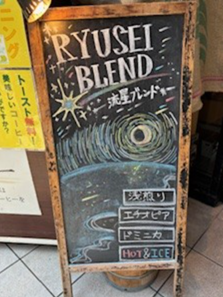 RYUSEI
BLEND
流星ブレンド
浅煎り
エチオピア
ドミニカ
HOT & ICE
トースト無料!
美味しいコーヒー